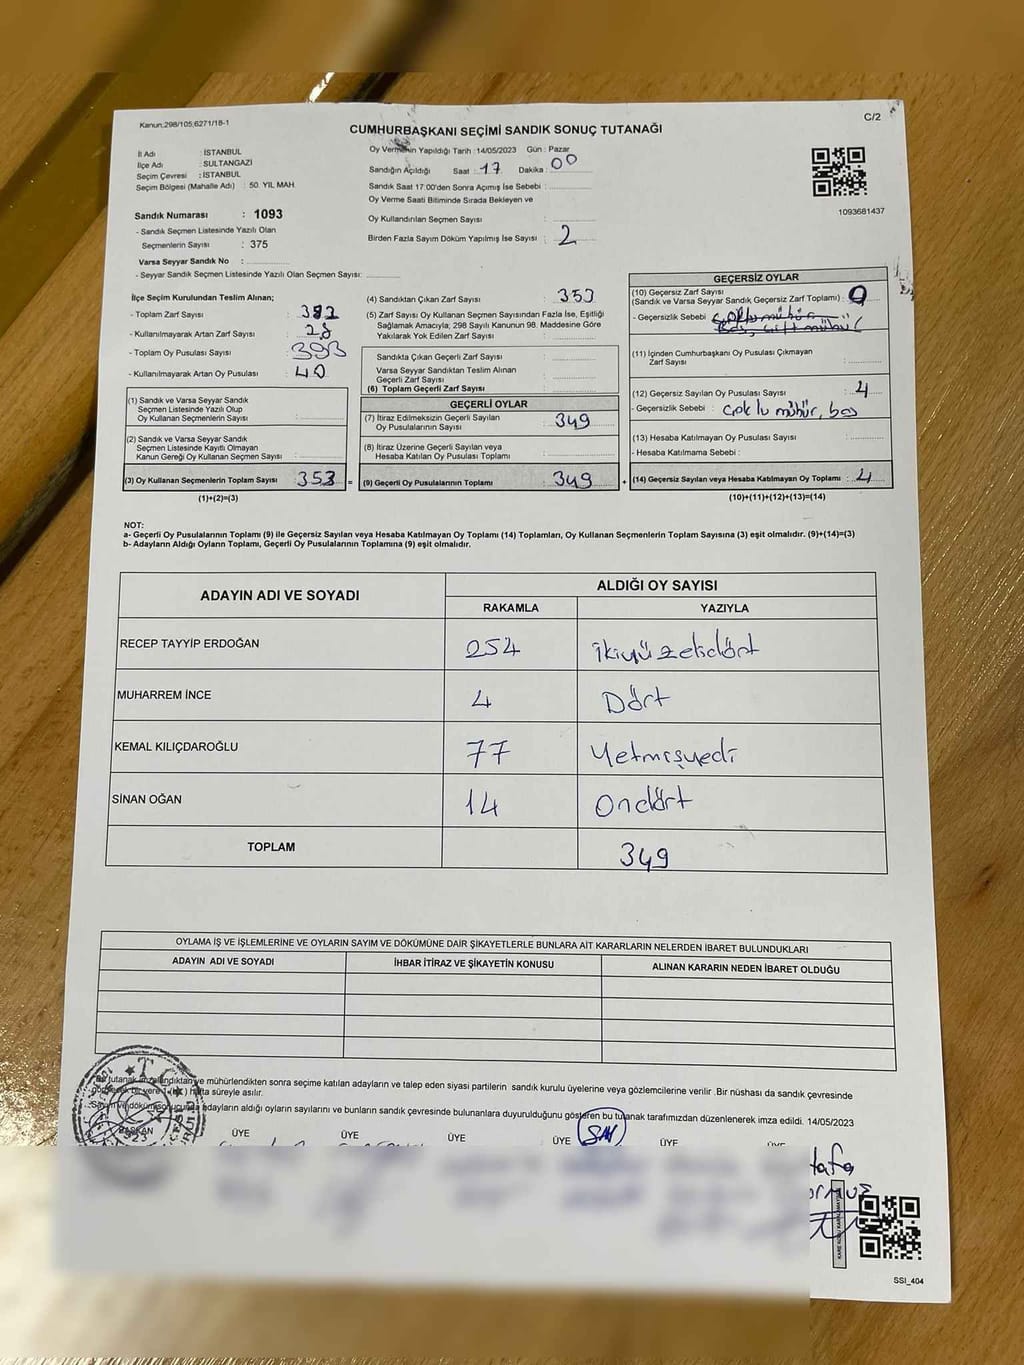 Kanun:298/105;6271/18-1
CUMHURBAŞKANI SEÇİMİ SANDIK SONUÇ TUTANAĞI
C/2
İl Adı : İSTANBUL
İlçe Adı : SULTANGAZİ
Seçim Çevresi : İSTANBUL
Seçim Bölgesi (Mahalle Adı) : 50. YIL MAH.
Sandık Numarası : 1093
- Sandık Seçmen Listesinde Yazılı Olan
Seçmenlerin Sayısı : 375
Varsa Seyyar Sandık No :
- Seyyar Sandık Seçmen Listesinde Yazılı Olan Seçmen Sayısı:
Oy Vermenin Yapıldığı Tarih :14/05/2023 Gün : Pazar
Sandığın Açıldığı Saat : 17 Dakika : 00
Sandık Saat 17:00'den Sonra Açımış İse Sebebi :
Oy Verme Saati Bitiminde Sırada Bekleyen ve
Oy Kullandırılan Seçmen Sayısı :
Birden Fazla Sayım Döküm Yapılmış İse Sayısı : 2
1093681437
İlçe Seçim Kurulundan Teslim Alınan;
- Toplam Zarf Sayısı :
- Kullanılmayarak Artan Zarf Sayısı : 28
- Toplam Oy Pusulası Sayısı : 393
- Kullanılmayarak Artan Oy Pusulası : 40
(1) Sandık ve Varsa Seyyar Sandık
Seçmen Listesinde Yazılı Olup
Oy Kullanan Seçmenlerin Sayısı :
(2) Sandık ve Varsa Seyyar Sandık
Seçmen Listesinde Kayıtlı Olmayan
Kanun Gereği Oy Kullanan Seçmen Sayısı :
(3) Oy Kullanan Seçmenlerin Toplam Sayısı : 353 =
(1)+(2)=(3)
(4) Sandıktan Çıkan Zarf Sayısı : 353
(5) Zarf Sayısı Oy Kullanan Seçmen Sayısından Fazla İse, Eşitliği
Sağlamak Amacıyla; 298 Sayılı Kanunun 98. Maddesine Göre
Yakılarak Yok Edilen Zarf Sayısı :
Sandıkta Çıkan Geçerli Zarf Sayısı :
Varsa Seyyar Sandıktan Teslim Alınan
Geçerli Zarf Sayısı :
(6) Toplam Geçerli Zarf Sayısı :
GEÇERLİ OYLAR
(7) İtiraz Edilmeksizin Geçerli Sayılan
Oy Pusulalarının Sayısı : 349
(8) İtiraz Üzerine Geçerli Sayılan veya
Hesaba Katılan Oy Pusulası Toplamı :
(9) Geçerli Oy Pusulalarının Toplamı : 349 +
GEÇERSİZ OYLAR
(10) Geçersiz Zarf Sayısı
(Sandık ve Varsa Seyyar Sandık Geçersiz Zarf Toplamı) : 0
- Geçersizlik Sebebi : çoklu mühür
(11) İçinden Cumhurbaşkanı Oy Pusulası Çıkmayan
Zarf Sayısı :
(12) Geçersiz Sayılan Oy Pusulası Sayısı : 4
- Geçersizlik Sebebi : çoklu mühür, boş
(13) Hesaba Katılmayan Oy Pusulası Sayısı :
- Hesaba Katılmama Sebebi :
(14) Geçersiz Sayılan veya Hesaba Katılmayan Oy Toplamı : 4
(10)+(11)+(12)+(13)=(14)
NOT:
a- Geçerli Oy Pusulalarının Toplamı (9) ile Geçersiz Sayılan veya Hesaba Katılmayan Oy Toplamı (14) Toplamları, Oy Kullanan Seçmenlerin Toplam Sayısına (3) eşit olmalıdır. (9)+(14)=(3)
b- Adayların Aldığı Oyların Toplamı, Geçerli Oy Pusulalarının Toplamına (9) eşit olmalıdır.
ADAYIN ADI VE SOYADI ALDIĞI OY SAYISI
RAKAMLA YAZIYLA
RECEP TAYYİP ERDOĞAN 254 ikiyüzellidört
MUHARREM İNCE 4 Dört
KEMAL KILIÇDAROĞLU 77 Yetmişyedi
SİNAN OĞAN 14 Ondört
TOPLAM 349
OYLAMA İŞ VE İŞLEMLERİNE VE OYLARIN SAYIM VE DÖKÜMÜNE DAİR ŞİKAYETLERLE BUNLARA AİT KARARLARIN NELERDEN İBARET BULUNDUKLARI
ADAYIN ADI VE SOYADI İHBAR İTİRAZ VE ŞİKAYETİN KONUSU ALINAN KARARIN NEDEN İBARET OLDUĞU
Bu tutanak imzalandıktan ve mühürlendikten sonra seçime katılan adayların ve talep eden siyasi partilerin sandık kurulu üyelerine veya gözlemcilerine verilir .Bir nüshası da sandık çevresinde
bir yere 1 hafta süreyle asılır.
adayların aldığı oyların sayılarını ve bunların sandık çevresinde bulunanlara duyurulduğunu gösteren bu tutanak tarafımızdan düzenlenerek imza edildi. 14/05/2023
BAŞKAN ÜYE ÜYE ÜYE ÜYE ÜYE ÜYE
SSI_404